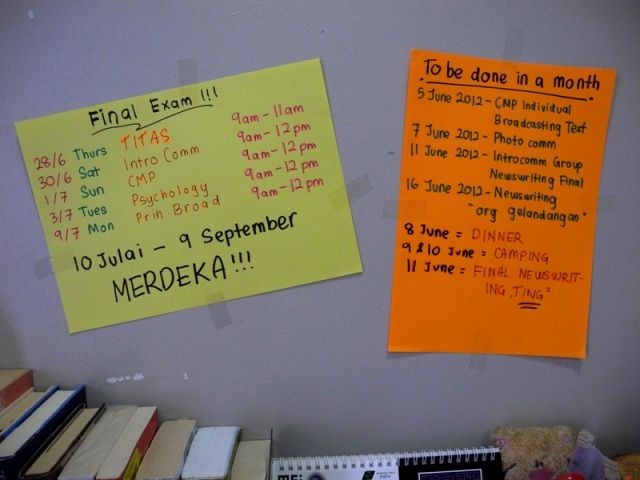 Final Exam !!!
28/6 Thurs TITAS 9am - 11am
30/6 Sat Intro Comm 9am - 12pm
1/7 Sun CMP 9am - 12pm
3/7 Tues Psychology 9am - 12pm
9/7 Mon Prin. Broad 9am - 12pm
10 Julai - 9 September
MERDEKA!!!
To be done in a month
5 June 2012 - CMP Individual
Broadcasting Test
7 June 2012 - Photo comm
11 June 2012 - Introcomm Group
Newswriting Final
16 June 2012 - Newswriting
"org gelandangan"
8 June = DINNER
9 & 10 June = CAMPING
11 June = FINAL NEWSWRIT-
ING "TING"